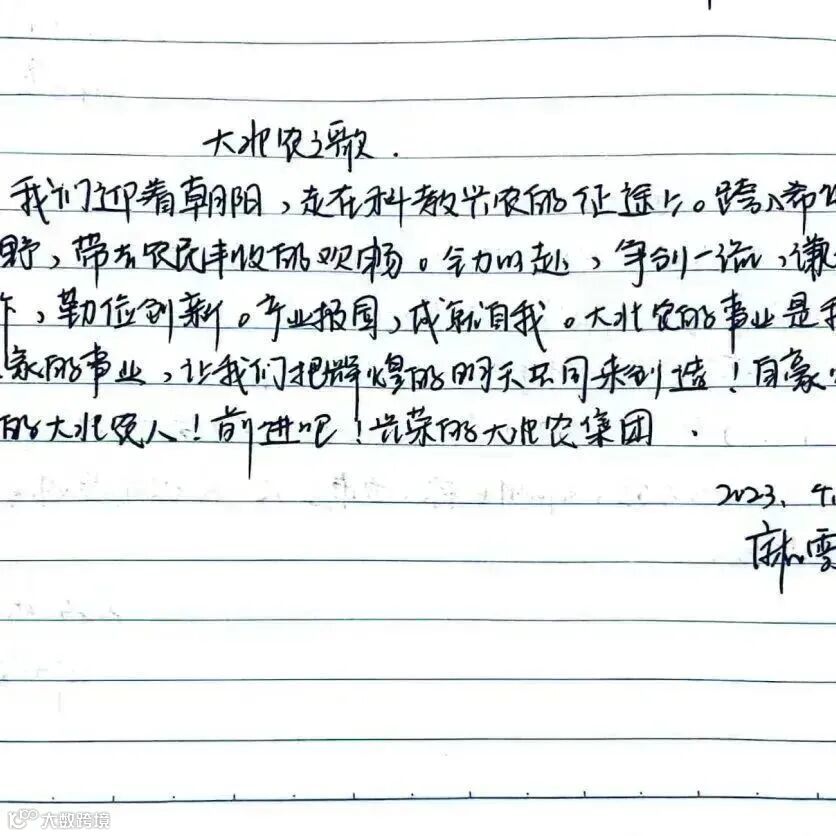 大北农之歌.
我们迎着朝阳,走在科教兴农的征途上。跨入希
野,带去农民丰收的欢畅。全力以赴,争创一流,谦
作,勤俭创新。产业报国,成就自我。大北农的事业是
家的事业,让我们把辉煌的明天共同来创造!自豪
的大北农人!前进吧!光荣的大北农集团.
2023. 4.
麻雪
大数跨境